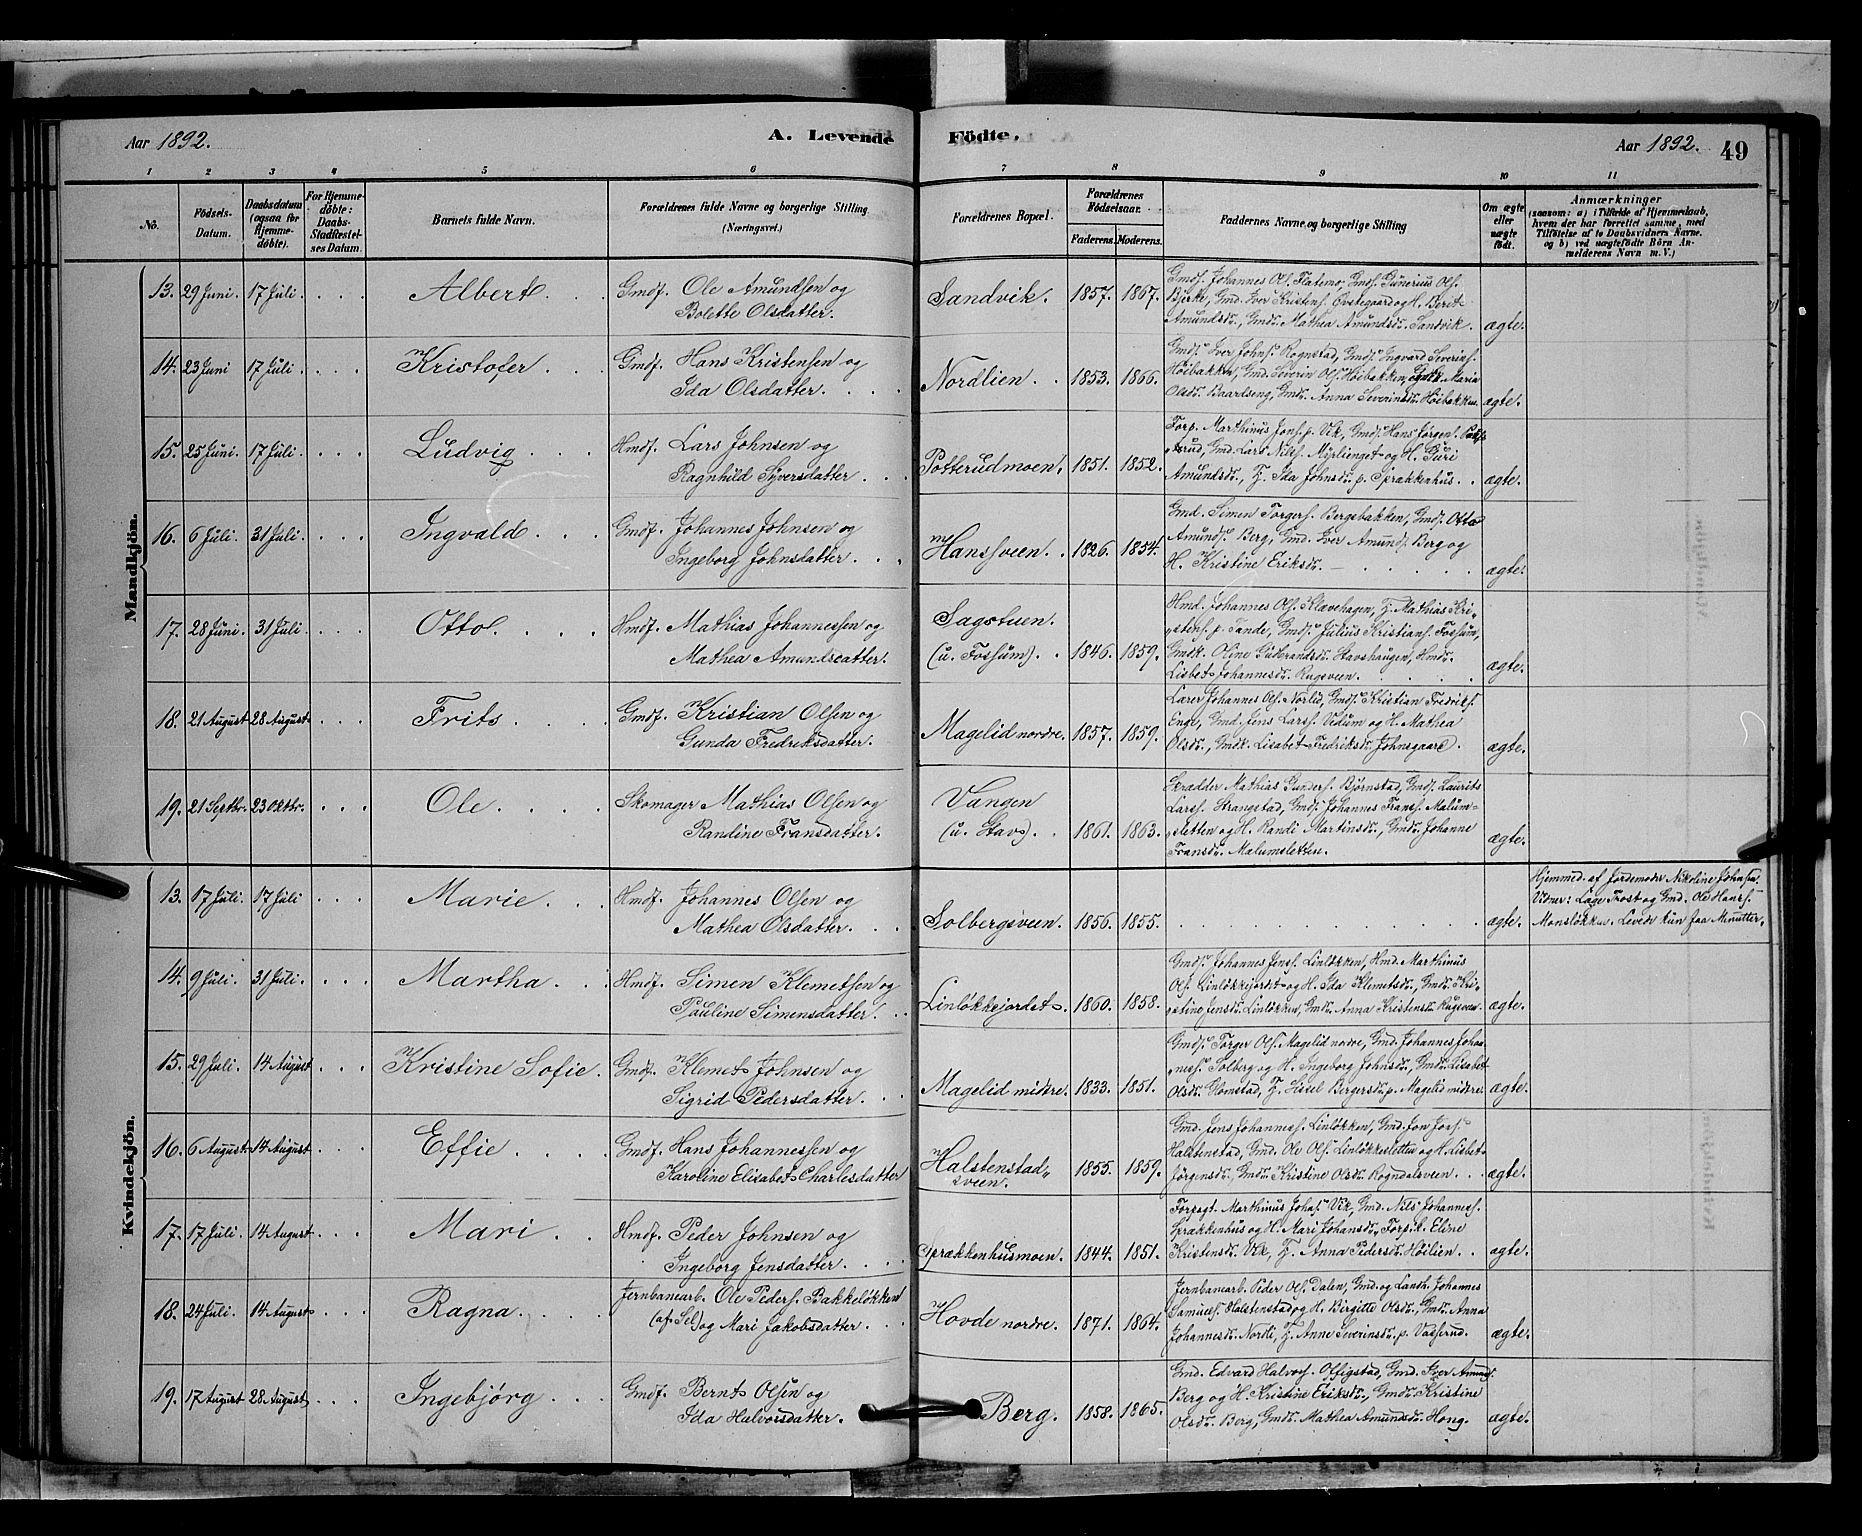 Aar 1892. A. Levende Födte. Aar 1892. 49
1 2 3 4 5 6 7 8 9 10 11
No.
Födsels-
Datum.
Daabsdatum
(ogsaa for
Hjemme-
döbte).
For Hjemme-
döbte:
Daabs-
Stadfestel-
ses Datum.
Barnets fulde Navn.
Forældrenes fulde Navne og borgerlige Stilling
(Næringsvei.)
Forældrenes Bopæl.
Forældrenes
Födselsaar.
Faderens. Moderens.
Faddernes Navne og borgerlige Stilling
Om ægte
eller
uægte
födt.
Anmærkninger
(saasom: a) i Tilfælde af Hjemmedaab,
hvem der har forrettet samme, med
Tilföielse af to Daabsvidners Navne.
og b) ved uægtefödte Börn An-
melderens Navn m. V.)
Mandkjön.
13. 29 Juni. 17 Juli. Albert. Gmdf. Ole Amundsen og
Bolette Olsdatter.
Sandvik. 1857. 1867.
Gmdf. Johannes Ol. Flatemo, Gmdf. Gunerius Ols.
Bjerke, Gmd. Iver Kristens. Qvstegaard og H. Berit
Amundsd., Gmdd. Mathea Amundsd. Sandvik. ægte.
14. 23 Juni 17 Juli. Kristofer. Gmdf. Hans Kristensen og
Ida Olsdatter.
Nordlien. 1853. 1866.
Gmdf. Iver Johns. Rognstad, Gmdf. Ingvard Severins.
Höibakken, Gmd. Severin Ols. Höibakken, Gmdk. Maria
Olsd. Baardseng, Gmdd. Anna Severinsd. Höibakken. ægte.
15. 25 Juni. 17 Juli. Ludvig. Hmdf. Lars Johnsen og
Ragnhild Syversdatter.
Potterudmoen. 1851. 1852.
Forp. Marthinus Jons. p. Vek, Gmdf. Hans Jörgen.
Gmd. Lars Nils. Myrlienget og H. Guri
Amundsd., T. Ida Johnsd. p. Sprækkenhus. ægte.
16. 6 Juli. 31 Juli. Ingvald. Gmdf. Johannes Johnsen og
Ingeborg Johnsdatter.
Hansveen. 1826. 1854.
Gmd. Simen Torgers. Bergsbakken, Gmdf. Otto
Amunds. Berg, Gmd. Iver Amunds. Berg og
H. Kristine Eriksd. ægte.
17. 28 Juni. 31 Juli. Otto. Hmdf. Mathias Johannessen og
Mathea Amundsdatter.
Sagstuen.
(u. Fossum). 1846. 1859.
Hmd. Johannes Ols. Klævehagen, T. Mathias Kri-
stens. p. Tande, Gmdf. Julius Kristians. Fossum,
Gmdk. Oline Gulbrandsd. Stavshaugen, Hmdd.
Lisbet Johannesd. Rugsveen. ægte.
18. 21 August 28 August Frits. Gmdf. Kristian Olsen og
Gunda Fredriksdatter.
Magelid nordre. 1857. 1859.
Lærer Johannes Ols. Norlid, Gmdf. Kristian Fredriks.
Enge, Gmd. Jens Larss. Vedum og H. Mathea
Olsd., Gmdk. Lisabet Fredriksd. Johnsgaard. ægte.
19. 21 Septbr. 23 Oktbr. Ole. Skomager Mathias Olsen og
Randine Fransdatter.
Vangen
(u. Stav). 1861. 1863.
Skrædder Mathias Gunders. Björnstad, Gmdf. Laurits
Larss. Strangstad, Gmdf. Johannes Frans. Malum-
sletten og H. Randi Martinsd., Gmdd. Johanne
Fransd. Malumsletten. ægte.
Kvindekjön.
13. 17 Juli. 17 Juli Marie. Hmdf. Johannes Olsen og
Mathea Olsdatter.
Solbergsveen. 1856. 1855. ægte.
Hjemmed. af Jordemoder Nikoline Johnsen.
Vidner: Lage Trost og Gmd. Ole Hans.
Monslökken. Levede kun faa Minutter.
14. 9 Juli. 31 Juli. Martha. Hmdf. Simen Klemetsen og
Pauline Simensdatter.
Linlökkejordet. 1860. 1858.
Gmdf. Johannes Jens. Linlökken, Hmd. Marthinus
Ols. Linlökkejordet og H. Ida Klemetsd., Gmdd. Kri-
stine Jensd. Linlökken, Gmdd. Anna Kristensd. Rugsveen. ægte.
15. 29 Juli. 14 August Kristine Sofie. Gmdf. Klemet Johnsen og
Sigrid Pedersdatter.
Magelid midtre. 1833. 1851.
Gmdf. Torger Ols. Magelid nordre, Gmd. Johannes Johan-
nes. Solberg og H. Ingeborg Johnsd., Gmdd. Lisabet
Olsd. Glomstad, T. Sissel Bergersd. p. Magelid midtre. ægte.
16. 6 August 14 August Effie. Gmdf. Hans Johannessen og
Karoline Elisabet Charlesdatter
Halstenstad-
sveen. 1855. 1859.
Gmd. Jens Johanness. Linlökken, Gmd. Jon Jons.
Halstenstad, Gmd. Ole Ols. Linlökkesletten og H. Lisbet
Jörgensd., Gmdd. Kristine Olsd. Rogndalsveen. ægte.
17. 17 Juli. 14 August Mari. Hmdf. Peder Johnsen og
Ingeborg Jensdatter.
Sprækkenhusmoen. 1844. 1851.
Forpagt. Marthinus Johas. Vek, Gmd. Nils Johannes.
Sprækkenhus og H. Mari Johansd., Forp.k. Eline
Kristensd. Vek, T. Anna Pedersd. Höilien. ægte.
18. 24 Juli. 14 August Ragna. Jernbanearb. Ole Peders. Bakkelökken
(af Sel) og Mari Jakobsdatter.
Hovde nordre. 1871. 1864.
Jernbanearb. Peder Ols. Dalen, Gmd. og Landh. Johannes
Samuels. Halstenstad og H. Birgitte Olsd., Gmdd. Anna
Johannesd. Nordli, T. Anne Severinsd. p. Vasserud. ægte.
19. 17 August 28 August Ingebjörg. Gmdf. Bernt Olsen og
Ida Halvorsdatter.
Berg. 1858. 1865.
Gmd. Edvard Halvors. Offigstad, Gmd. Iver Amunds.
Berg og H. Kristine Eriksd., Gmdd. Kristine
Olsd. Berg, Gmdd. Mathea Amundsd. Hong. ægte.